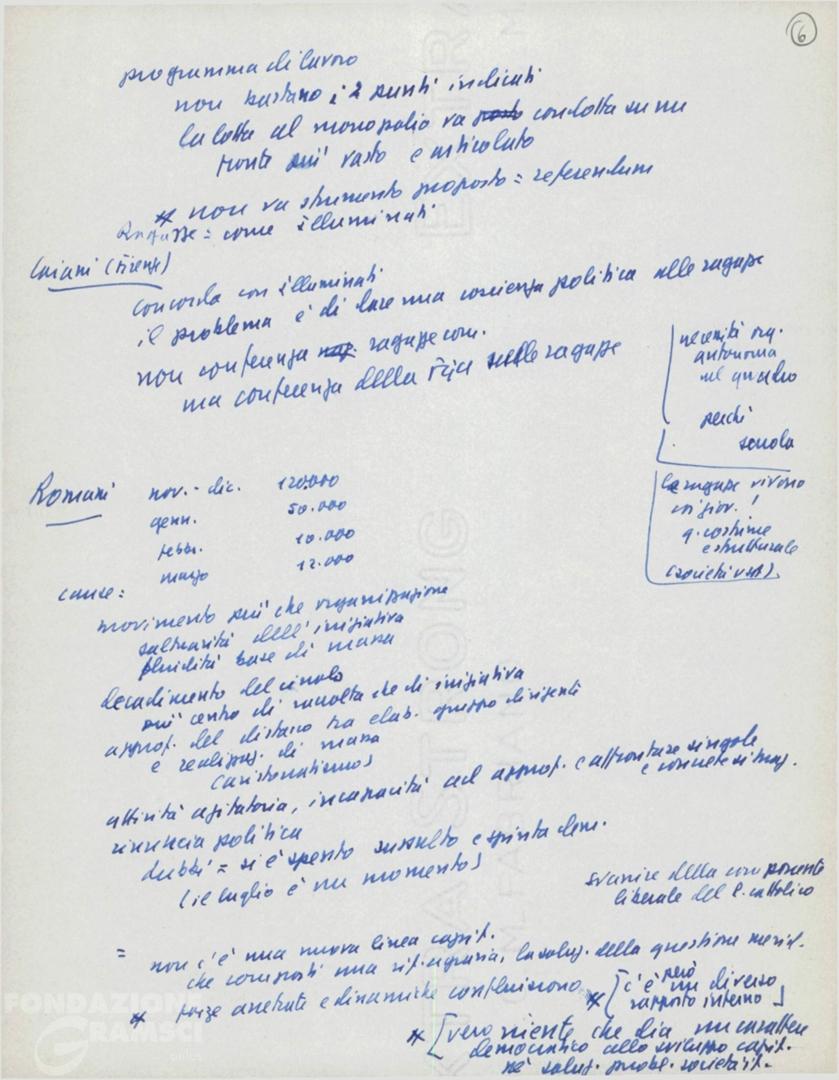 6
programma di lavoro
non bastano i 2 punti indicati
la lotta al monopolio va condotta su un
fronte più vasto e articolato
* non va strumento proposto = referendum
Ragazze = come illuminati
Caiani (Firenze)
concorda con illuminati
il problema è di dare una coscienza politica alle ragazze
non conferenza rag. ragazze com.
ma conferenza della FGCI sulle ragazze
necessità org.
autonoma
nel quadro
perché
scuola
le ragazze vivono
q. costume
e strutturale
(società
Romani nov. - dic. 120.000
genn. 50.000
febbr. 10.000
marzo 12.000
cause:
movimento più che organizzazione
saltuarietà dell'iniziativa
fluidità base di massa
decadimento del circolo
più centro di raccolta che di iniziativa
approf. del distacco tra elab. gruppo dirigenti
e realizzaz. di massa
attività agitatoria, incapacità ad approf. e affrontare singole
e concrete situaz.
rinuncia politica
dubbi = si è spento sussulto e spinta dem.
(il luglio è un momento)
svanire della componente
liberale del p. cattolico
= non c'è una nuova linea capit.
che comporti una rif. agraria, la soluz. della questione merid.
* forze arretrate e dinamiche confluiscono * [c'è però un diverso
rapporto interno]
* [vero niente che dia un carattere
democratico allo sviluppo capit.
né soluz. probl. società it.
FONDAZIONE
GRAMSCI